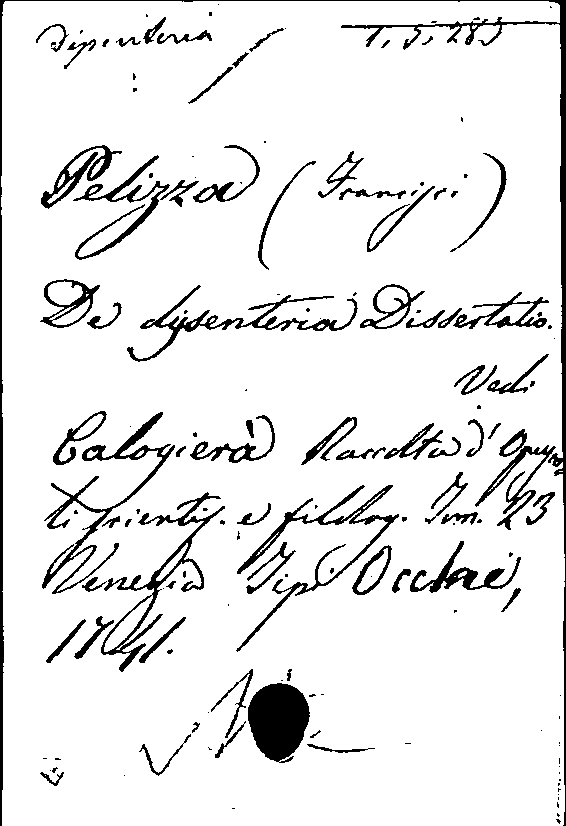 Dissenteria 1. 5. 283
Pelizza (Francisci)
De dysenteria Dissertatio.
Vedi
Calogierà Raccolta d'Opusco
li scientif. e filolog. Tom. 23
Venezia Tipi Occhi,
1741.